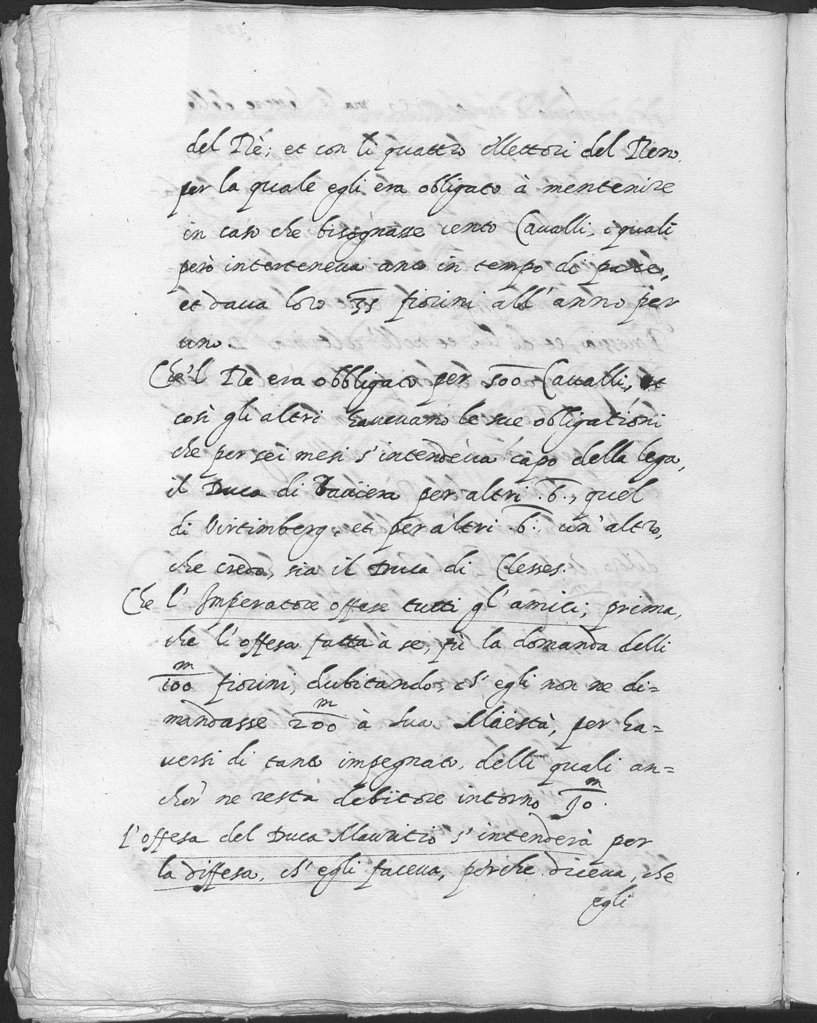 del Rè; et con li quattro Elettori del Reno,
per la quale egli era obligato à mentenire
in caso che bisognasse cento Cavalli, i quali
però interteneua anco in tempo di pace,
et daua loro 35 fiorini all'anno per
uno.
Che'l Rè era obbligato per 500 Caualli, et
così gli altri haueuano le sue obligationi
che per sei mesi s'intendeua capo della lega,
il Duca di Bauiera per altri .6., quel
di Virtimberg, et per altri .6. un'altro,
che credo, sia il Duca di Cleues.
Che l'Imperatore offese tutti gl'amici; prima,
che l'offesa fatta à se, fù la domanda delli
m
100 fiorini, dubitando, ch'egli non ne di=
m
mandasse 200 à Sua Maestà, per ha=
uersi di tanto impegnato, delli quali an=
m
chor ne resta debitore intorno 90.
L'offesa del Duca Mauritio s'intenderà per
la diffesa, ch'egli faceua, perche diceua, che
egli